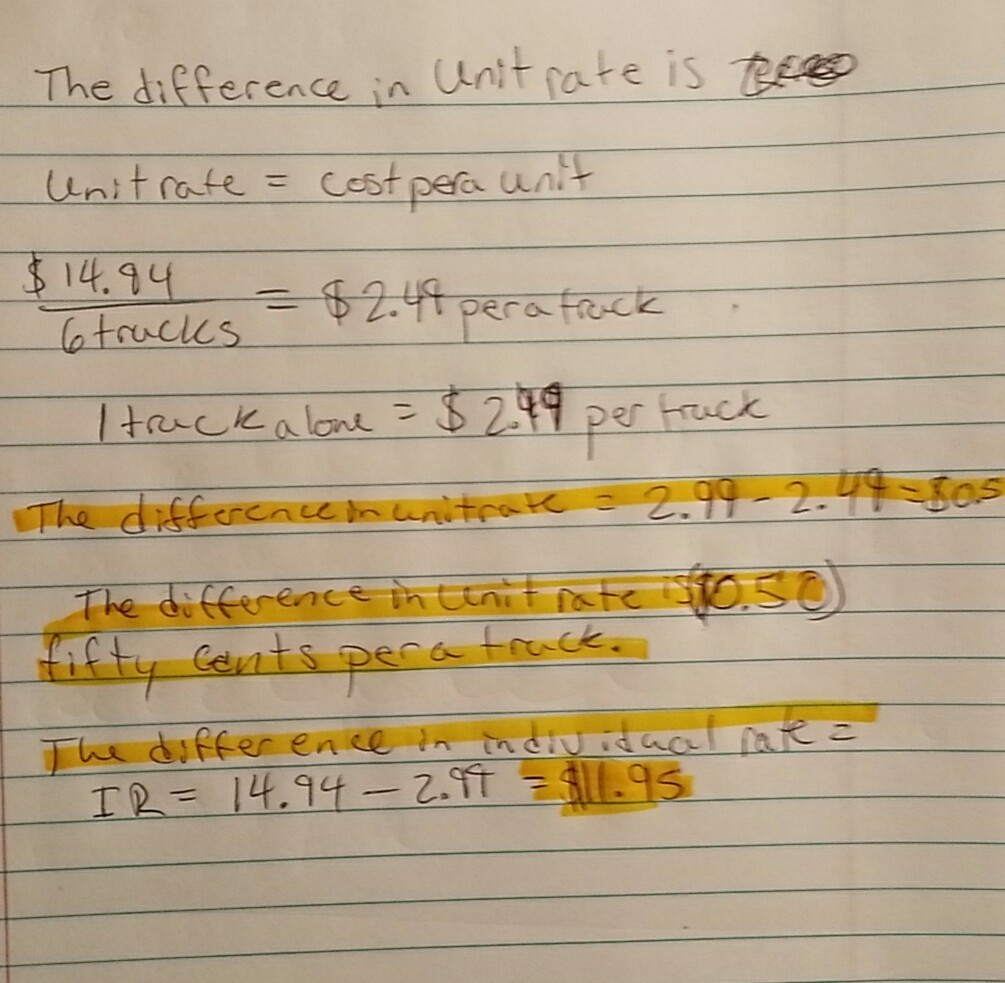 The difference in Unit rate is
Unit rate = cost per a unit
$14.94
6 trucks
= $2.49 per a truck
1 truck alone = $2.99 per truck
The difference in unit rate = 2.99 - 2.49 = $0.5
The difference in Unit rate is ($0.50)
fifty cents per a truck.
The difference in individual rate =
IR = 14.94 - 2.99 = $11.95